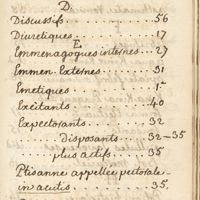 D.
Discussifs .......... 56
Diuretiques .......... 17
E.
Emmenagogues internes .. 27
Emmen. Externes ....... 31
Emetiques ............ 1
Exitants ............ 40
Expectorants ........ 32
Disposants ..... 32-35
plus actifs .... 35
Ptisanne appellée pectorale
in acutis ........... 35.